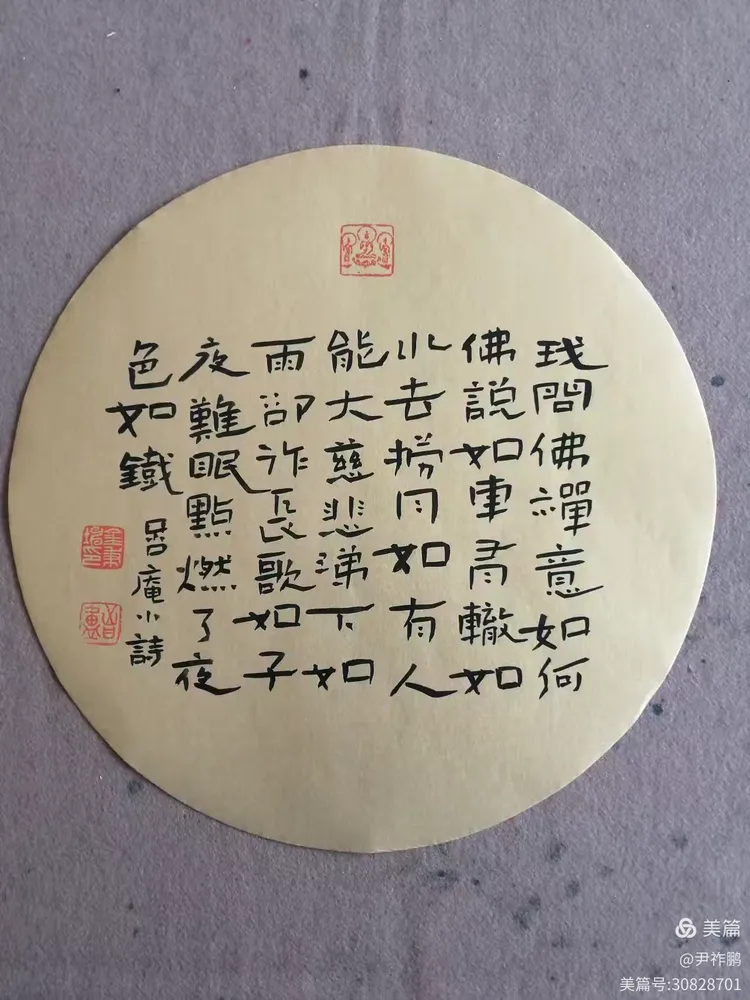 我問佛禪意如何
佛說如車有轍如
水去撈月如有人
能大慈悲涕下如
雨卻作長歌如子
夜難眠點燃了夜
色如鐵
庵小詩
美篇
@尹祚鹏
美篇号:30828701